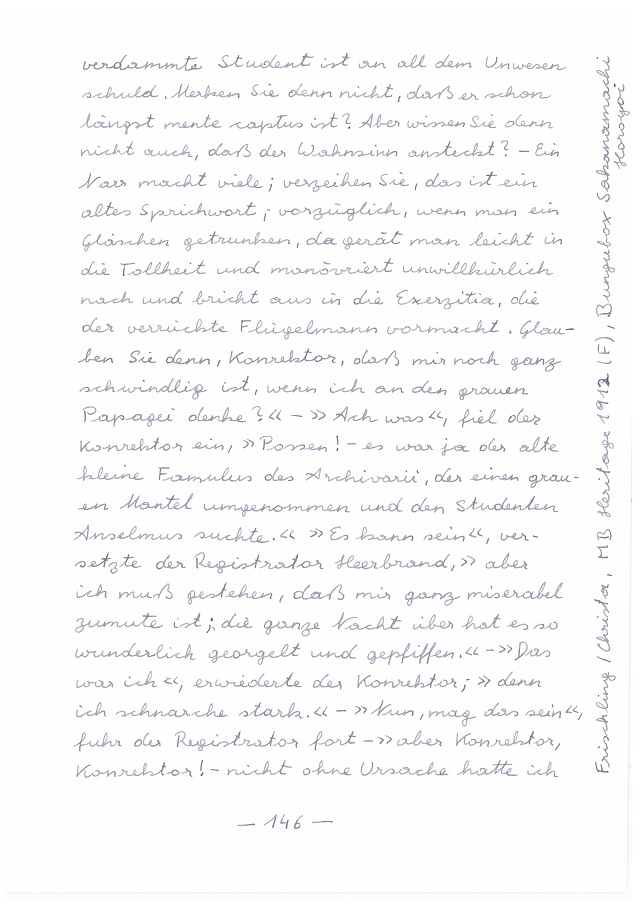 verdammte Student ist an all dem Unwesen
schuld. Merken Sie denn nicht, daß er schon
längst mente captus ist? Aber wissen Sie denn
nicht auch, daß der Wahnsinn ansteckt? – Ein
Narr macht viele; verzeihen Sie, das ist ein
altes Sprichwort; vorzüglich, wenn man ein
Gläschen getrunken, da gerät man leicht in
die Tollheit und manövriert unwillkürlich
nach und bricht aus in die Exerzitia, die
der verrückte Flügelmann vormacht. Glau-
ben Sie denn, Konrektor, daß mir noch ganz
schwindlig ist, wenn ich an den grauen
Papagei denke?« – »Ach was«, fiel der
Konrektor ein, »Possen! – es war ja der alte
kleine Famulus des Archivarii, der einen grau-
en Mantel umgenommen und den Studenten
Anselmus suchte.« »Es kann sein«, ver-
setzte der Registrator Heerbrand, »aber
ich muß gestehen, daß mir ganz miserabel
zumute ist; die ganze Nacht über hat es so
wunderlich georgelt und gepfiffen.« – »Das
war ich«, erwiederte der Konrektor; »denn
ich schnarche stark.« – »Nun, mag das sein«,
fuhr der Registrator fort – »aber Konrektor,
Konrektor! – nicht ohne Ursache hatte ich
– 146 –
Frischling / Christa, MB Heritage 1912 (F), Bungubox Sakanamachi
Horoyoi